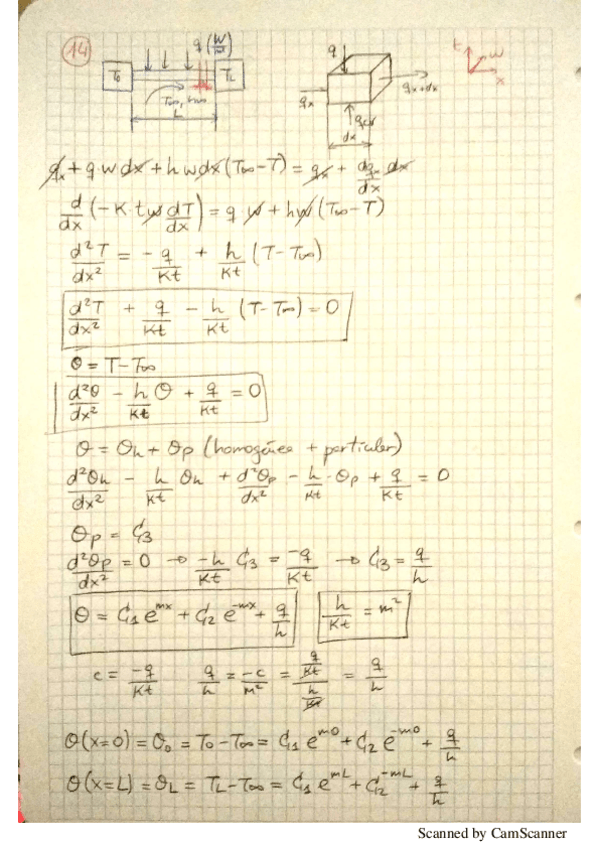 14
q (W/m²)
T₀
T_L
T∞, h∞
L
q
q_x
q_x+dx
q_cv
dx
t
w
x
q_x + q w dx + h w dx (T∞ - T) = q_x + dq_x/dx dx
d/dx (-K·t w dT/dx) = q w + h w (T∞ - T)
d²T/dx² = - q/Kt + h/Kt (T - T∞)
d²T/dx² + q/Kt - h/Kt (T - T∞) = 0
θ = T - T∞
d²θ/dx² - h/Kt θ + q/Kt = 0
θ = θh + θp (homogénea + particular)
d²θh/dx² - h/Kt θh + d²θp/dx² - h/Kt · θp + q/Kt = 0
θp = C₃
d²θp/dx² = 0 → -h/Kt C₃ = -q/Kt → C₃ = q/h
θ = C₁ e^mx + C₂ e^-mx + q/h   h/Kt = m²
c = -q/Kt   q/h = -c/m² = (q/Kt)/(h/Kt) = q/h
θ(x=0) = θ₀ = T₀ - T∞ = C₁ e^m0 + C₂ e^-m0 + q/h
θ(x=L) = θ_L = T_L - T∞ = C₁ e^mL + C₂^-mL + q/h
Scanned by CamScanner